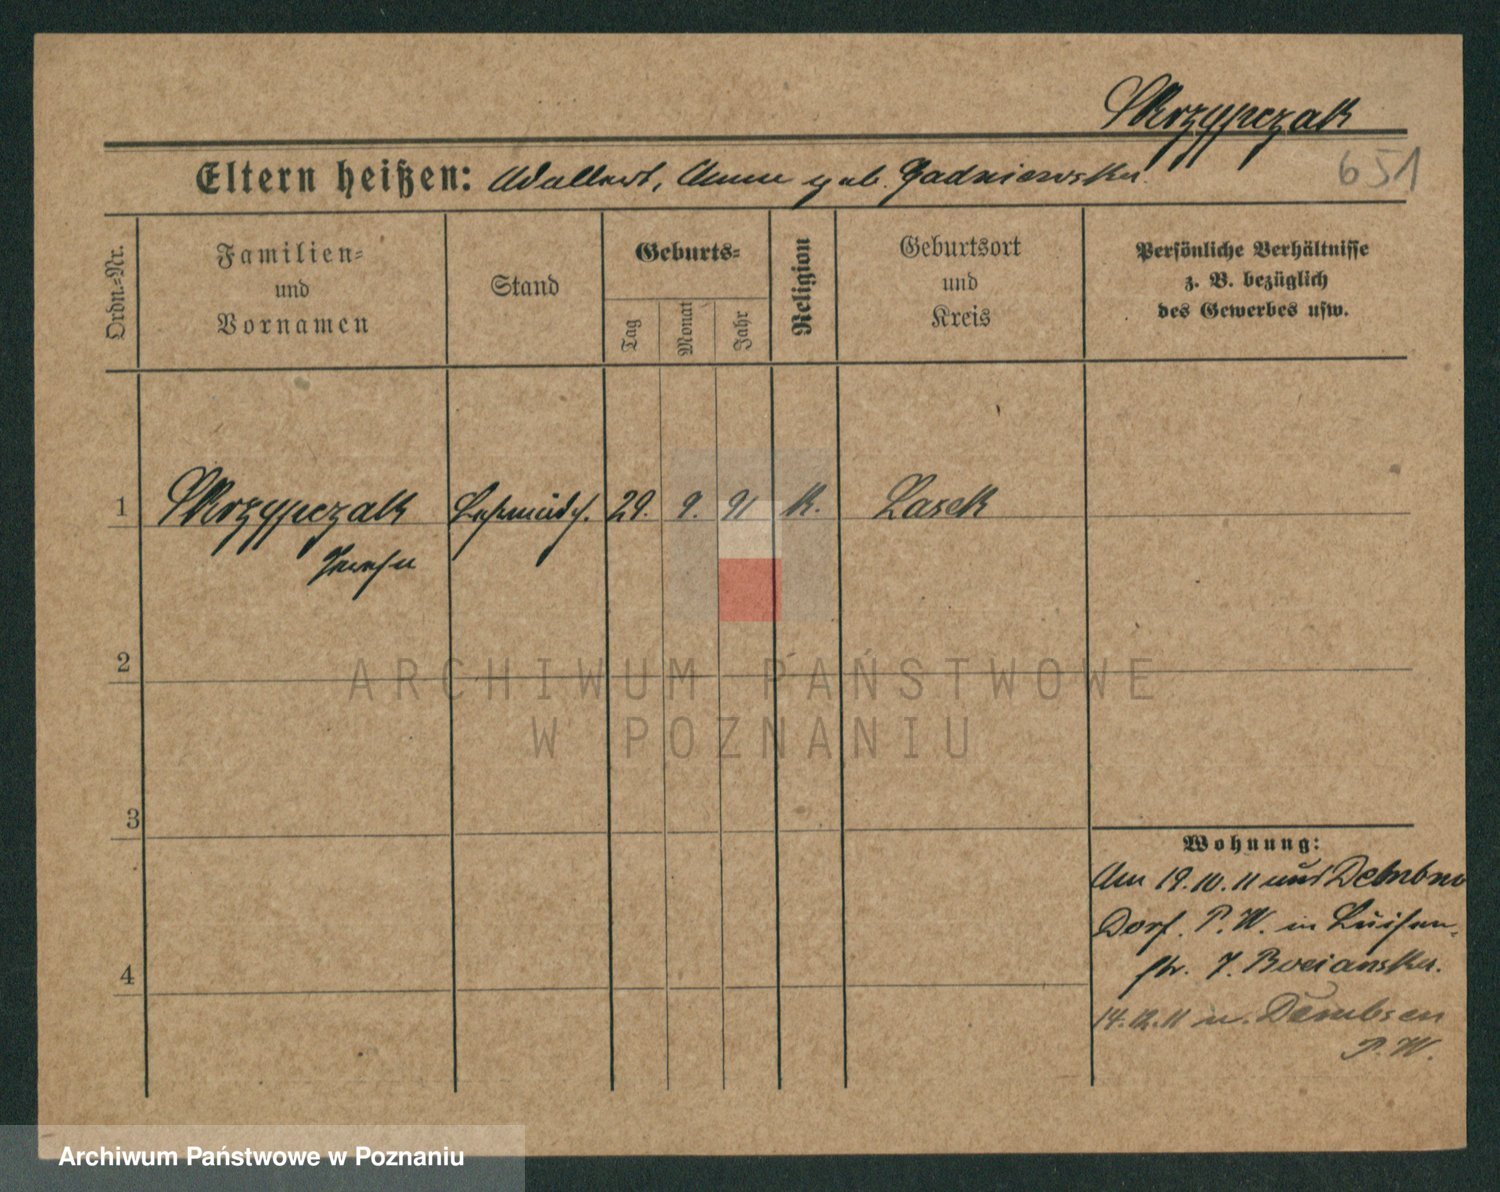 Skrzypczak
Eltern heißen: Adalbert, Anna geb. Gadniewska
651
Ordn.-Nr.
Familien-
und
Vornamen
Stand
Geburts-
Tag
Monat
Jahr
Religion
Geburtsort
und
Kreis
Persönliche Verhältnisse
z. B. bezüglich
des Gewerbes usw.
1 Skrzypczak 29. 9. 91 k. Lasek
2
3
4
Wohnung:
Am 19.10.11 Dembsen
Dorf. P. W. in Luisen-
str. 7. Bocianska.
14.12.11 n. Dembsen
P. W.
ARCHIWUM PAŃSTWOWE
W POZNANIU
Archiwum Państwowe w Poznaniu